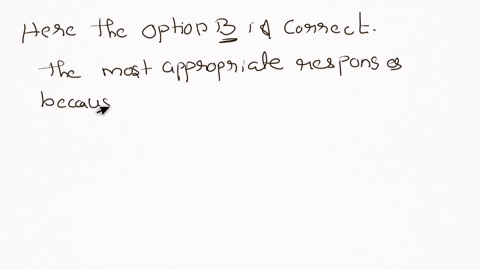 Here the option B is correct.
the most appropriate respons es
becaus